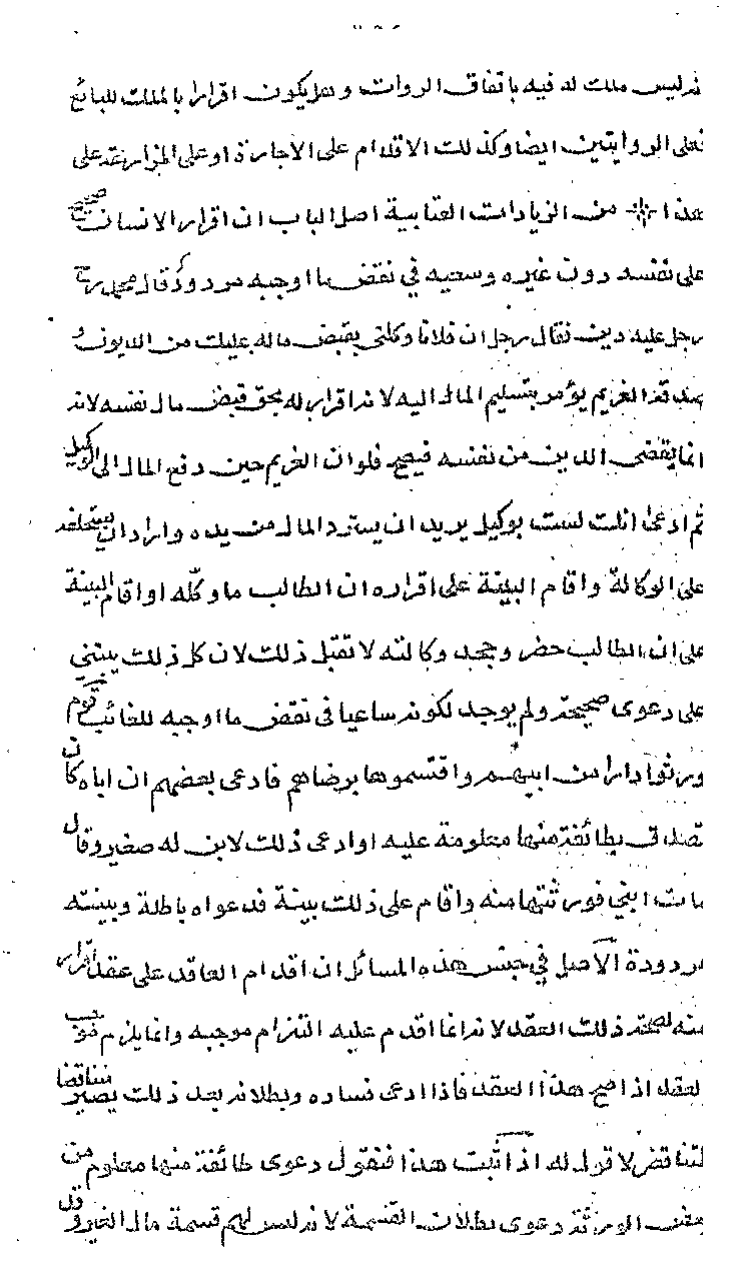 انه ليس ملك له فيه باتفاق الروات وهل يكون اقرارا بالملك للبائع
فعلى الروايتين ايضا وكذلك الاقدام على الاجارة او على المزارعة على
هذا من الزيادات العتابية اصل الباب ان اقرار الانسان صحيح
على نفسه دون غيره وسعيه في نقض ما اوجبه مردود قال محمد رح
رجل عليه دين فقال رجل ان فلانا وكلني بقبض ماله عليك من الديون و
صدقه الغريم يؤمر بتسليم المال اليه لانه اقرار له بحق قبض مال نفسه لانه
انما يقضى الدين من نفسه فيصح فلو ان الغريم حين دفع المال الى الوكيل
ثم ادعى انك لست بوكيل يريد ان يسترد المال من يده واراد ان يستحلفه
على الوكالة واقام البينة على اقراره ان الطالب ما وكله او اقام البينة
على ان الطالب حضر وجحد وكالته لا تقبل ذلك لان كل ذلك يبتني
على دعوى صحيحة ولم يوجد لكونه ساعيا في نقض ما اوجبه للغائب قوم
ورثوا دارا من ابيهم واقتسموها برضاهم فادعى بعضهم ان اباه كان
تصدق بطائفة منها معلومة عليه او ادعى ذلك لابن له صغير وقال
مات ابني فورثتها منه واقام على ذلك بينة فدعواه باطلة وبينته
مردودة الاصل في جنس هذه المسائل ان اقدام العاقد على عقد اقرار
منه لصحة ذلك العقد لانه انما اقدم عليه التزام موجبه وانما يلزم موجب
العقد اذا صح هذا العقد فاذا ادعى فساده وبطلانه بعد ذلك يصير متناقضا
المتناقض لا قول له اذا ثبت هذا فنقول دعوى طائفة منها معلوم من
بعض الورثة دعوى بطلان القسمة لانه ليس لهم قسمة مال الغير وقال